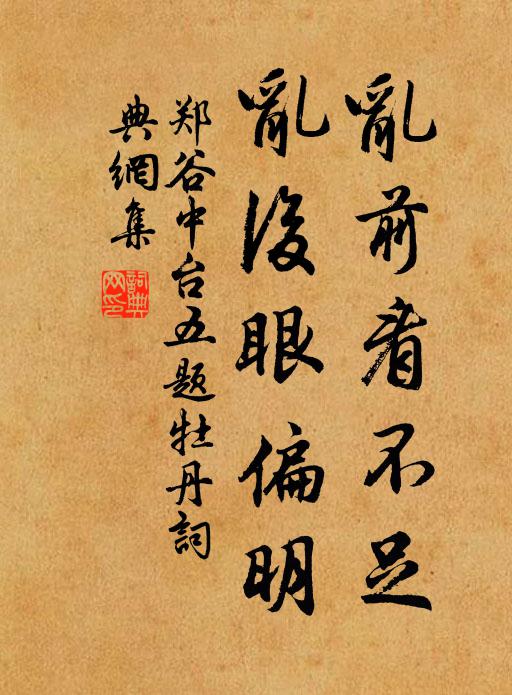 亂前看不足
亂後眼偏明
郑谷中台五题牡丹詞
典網集
詞典
网印